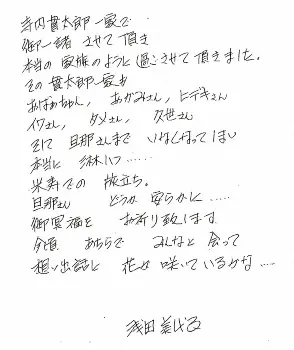 寺内貫太郎一家で
御一緒 させて頂き
本当の 家族のように 過ごさせて頂きました。
その 貫太郎一家も
おばあちゃん, おかみさん, ヒデキさん
イワさん, タメさん, 久世さん
そして 旦那さんまで いなくなってしまい
本当に 淋しい……
米寿での 旅立ち。
旦那さん どうか 安らかに……
御冥福を お祈り致します
今頃 あちらで みんなと 会って
想い出話に 花が 咲いているかな…..
浅田美代子